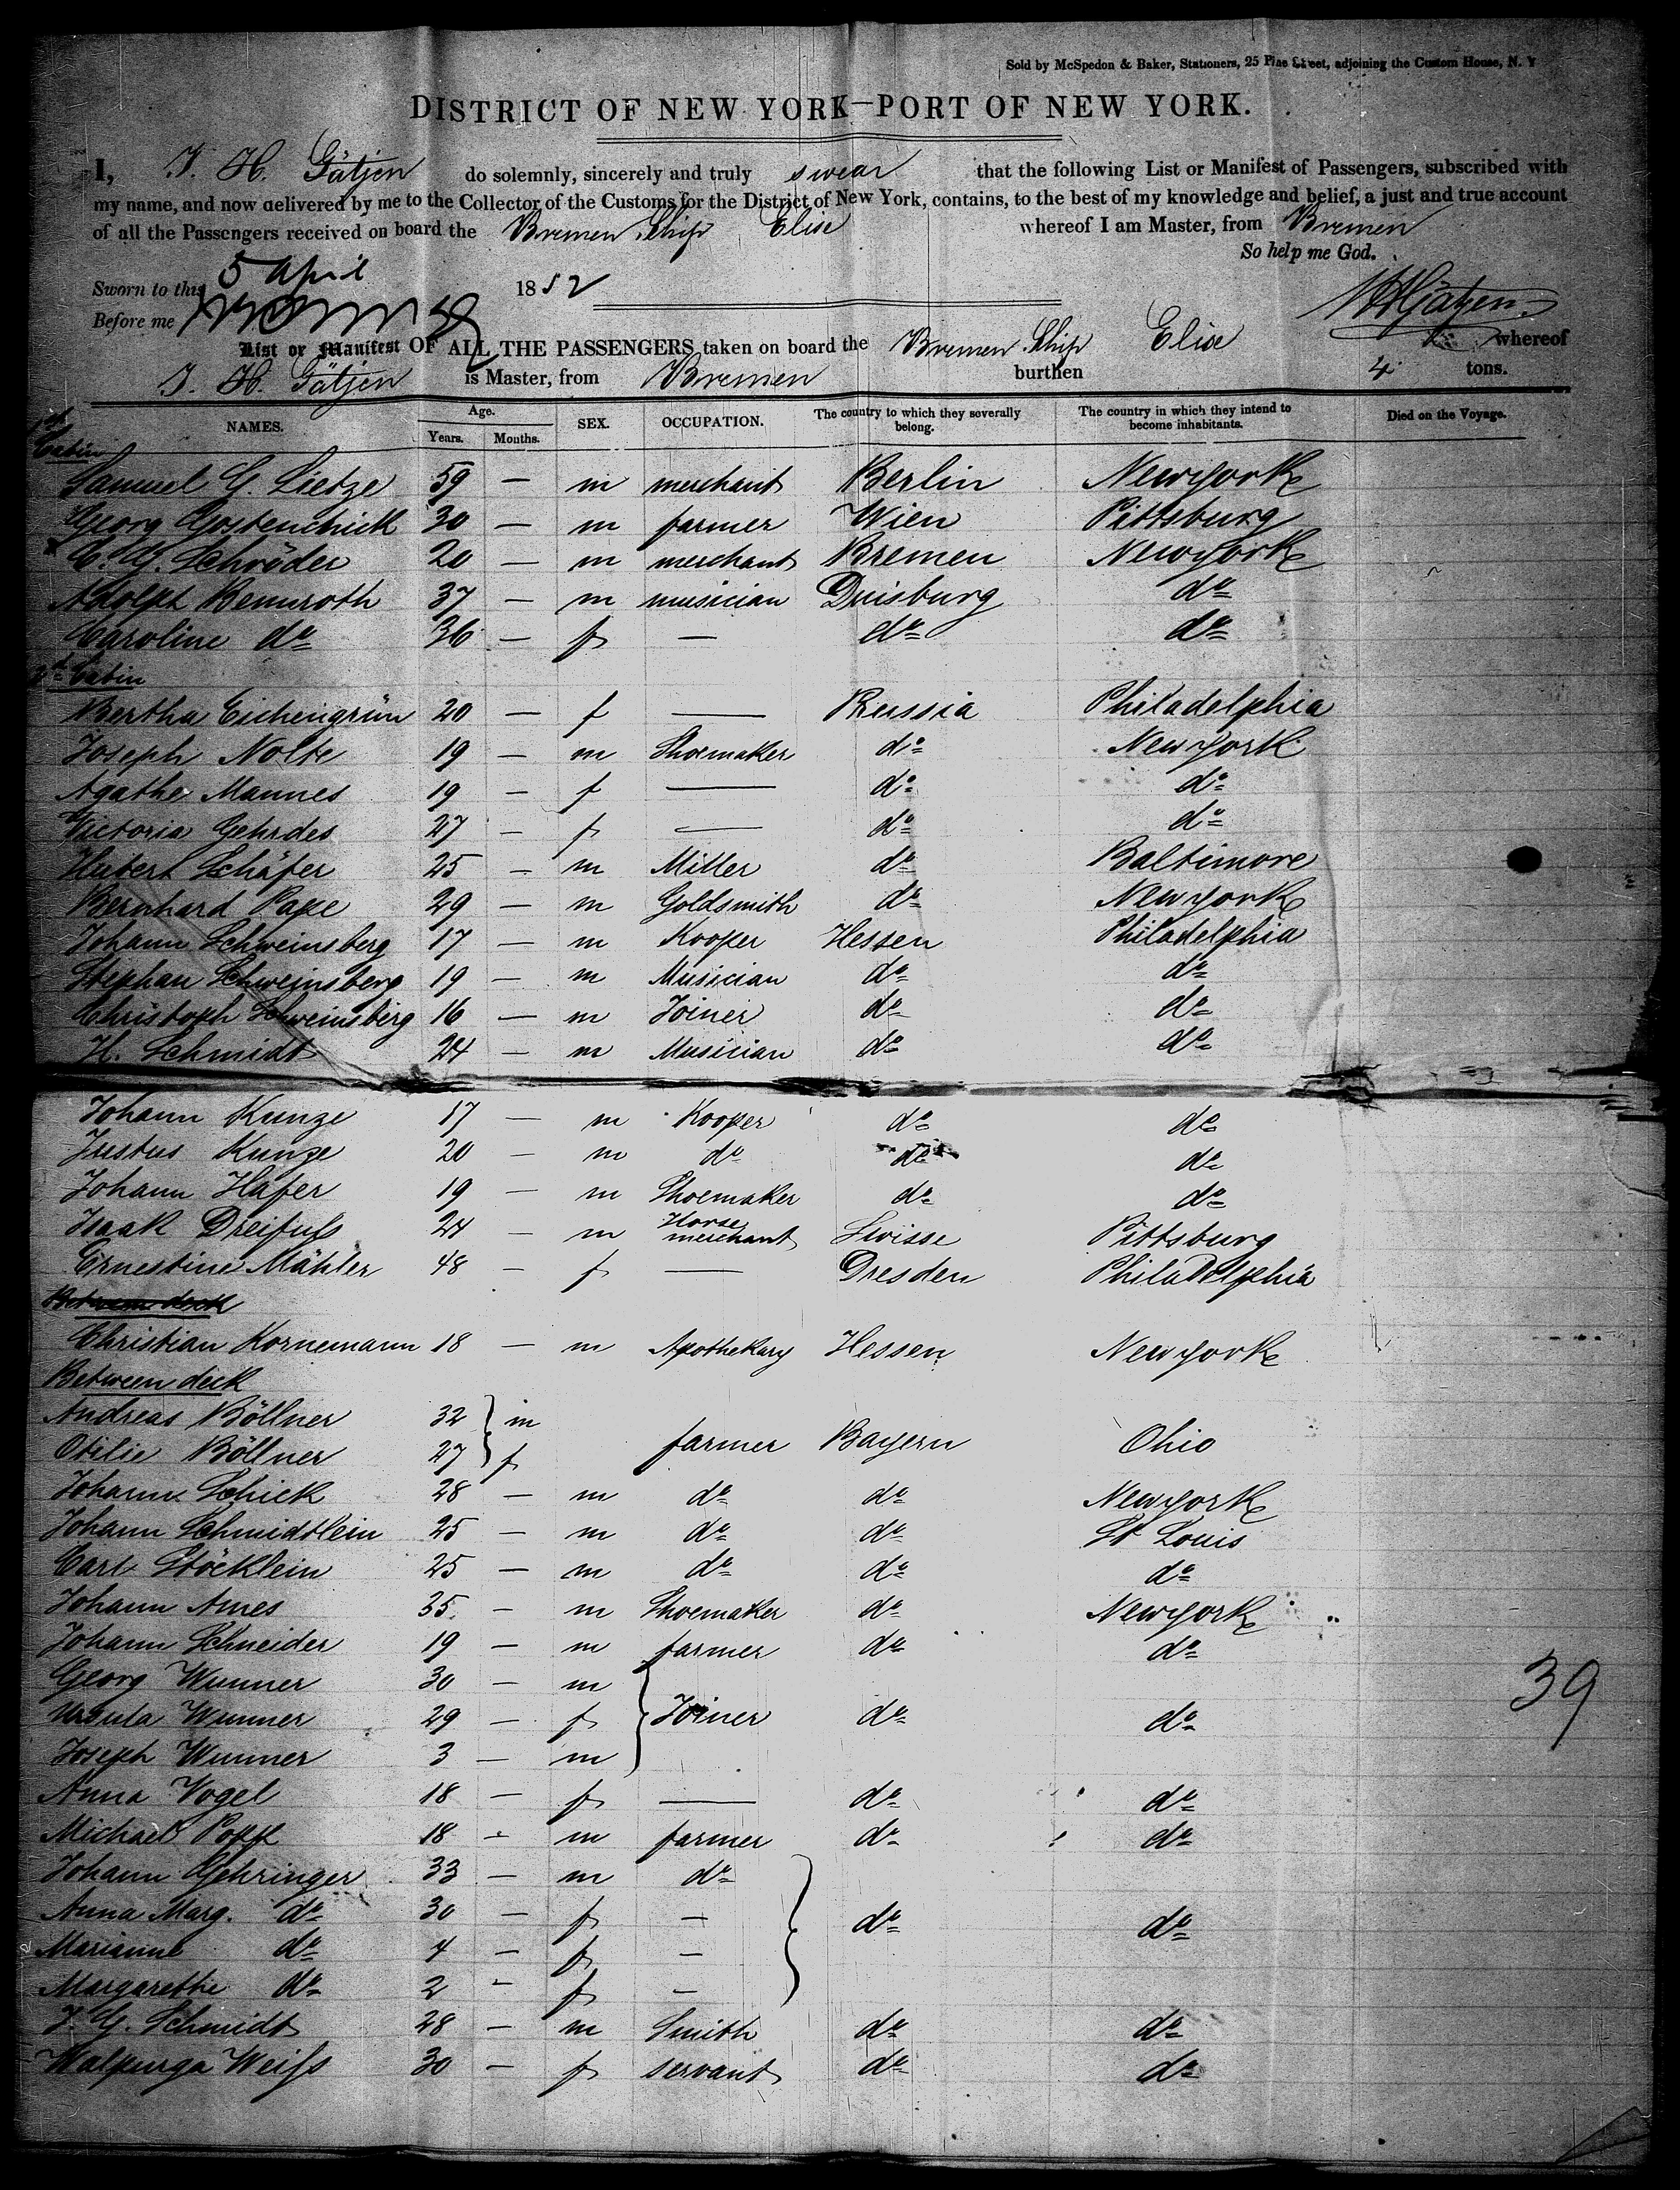 Sold by McSpedon & Baker, Stationers, 25 Pine Street, adjoining the Custom House, N. Y
DISTRICT OF NEW YORK—PORT OF NEW YORK.
I, J. H. Gätjen do solemnly, sincerely and truly swear that the following List or Manifest of Passengers, subscribed with
my name, and now delivered by me to the Collector of the Customs for the District of New York, contains, to the best of my knowledge and belief, a just and true account
of all the Passengers received on board the Bremen Ship Elise whereof I am Master, from Bremen
So help me God.
Sworn to this 5 April 1852
Before me
JHGätjen.
List or Manifest OF ALL THE PASSENGERS taken on board the Bremen Ship Elise whereof
J. H. Gätjen is Master, from Bremen burthen tons.
NAMES. Age. Years. Months. SEX. OCCUPATION. The country to which they severally belong. The country in which they intend to become inhabitants. Died on the Voyage.
1st Cabin
Samuel G. Lietze 59 — m merchant Berlin Newyork
Georg 30 — m farmer Wien Pittsburg
C. G. Schröder 20 — m merchant Bremen Newyork
Adolph Bemroth 37 — m musician Duisburg do
Caroline do 36 — f — do do
2d Cabin
Bertha Eichengrün 20 — f — Prussia Philadelphia
Joseph Nolte 19 — m Shoemaker do New york
Agathe Mannes 19 — f — do do
Victoria Gehrdes 27 — f — do do
Hubert Schäfer 25 — m Miller do Baltimore
Bernhard Pape 29 — m Goldsmith do Newyork
Johann Schweinsberg 17 — m Kooper Hessen Philadelphia
Stephan Schweinsberg 19 — m Musician do do
Christoph Schweinsberg 16 — m Joiner do do
H. Schmidt 24 — m Musician do do
Johann Kunze 17 — m Kooper do do
Justus Kunze 20 — m do do do
Johann Hafer 19 — m Shoemaker do do
Isaak Dreifuſs 24 — m Horse merchant Swisse Pittsburg
Ernestine Mähler 48 — f — Dresden Philadelphia
Between deck
Christian Kornemann 18 — m Apothekary Hessen Newyork
Between deck
Andreas Böllner 32 m
Otilie Böllner 27 f farmer Bayern Ohio
Johann Schick 28 — m do do Newyork
Johann Schmidtlein 25 — m do do St Louis
Carl Stöcklein 25 — m do do do
Johann Ames 35 — m Shoemaker do Newyork
Johann Schneider 19 — m farmer do do
Georg Wunner 30 — m
Ursula Wunner 29 — f Joiner do do
Joseph Wunner 3 — m
39
Anna Vogel 18 — f — do do
Michael Popp 18 — m farmer do do
Johann Gehringer 33 — m do
Anna Marg. do 30 — f — do do
Marianne do 4 — f —
Margarethe do 2 — f —
J. G. Schmidt 28 — m Smith do do
Walpurga Weiſs 30 — f servant do do